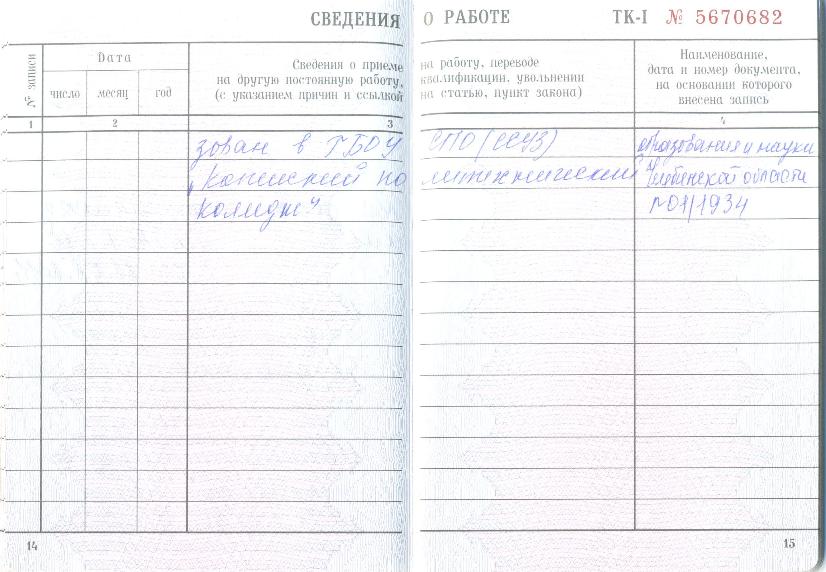 СВЕДЕНИЯ О РАБОТЕ ТК-I № 5670682
№ записи
Дата
число месяц год
Сведения о приеме на работу, переводе
на другую постоянную работу, квалификации, увольнении
(с указанием причин и ссылкой на статью, пункт закона)
Наименование,
дата и номер документа,
на основании которого
внесена запись
1 2 3 4
зован в ГБОУ СПО (ССУЗ) образования и науки
"Копейский политехнический Челябинской области
колледж" №01/1934
14 15